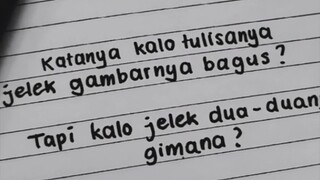 Katanya kalo tulisanya
jelek gambarnya bagus?
Tapi kalo jelek dua-duan
gimana?